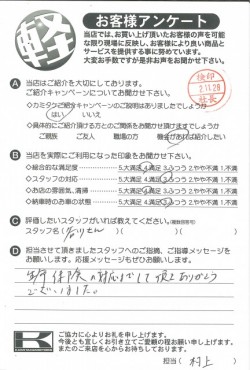 軽
お客様アンケート
当店では、お買い上げ頂いたお客様の声を可能
な限り現場に反映し、お客様により良い商品と
サービスを提供する事に努めています。
大変お手数ですが是非お声をお聞かせ下さい。
A 当店はご紹介を大切にしております。
ご紹介キャンペーンについてお聞かせ下さい。
検印
2.11.28
店長
・カミタウンご紹介キャンペーンのご説明はありましたでしょうか
はい いいえ
・具体的にご紹介頂ける方とのご関係をお聞かせ頂けますでしょうか
ご親族 ご友人 職場の方 機会があれば紹介したい
B 当店を実際にご利用になった印象をお聞かせ下さい。
・総合的な満足度 5.大満足 4.満足 3.ふつう 2.やや不満 1.不満
・スタッフの対応 5.大満足 4.満足 3.ふつう 2.やや不満 1.不満
・お店の雰囲気、清掃 5.大満足 4.満足 3.ふつう 2.やや不満 1.不満
・納車時のお車の状態 5.大満足 4.満足 3.ふつう 2.やや不満 1.不満
C 評価したいスタッフがいれば教えてください。(複数回答可)
スタッフ名( さん
D 担当させて頂きましたスタッフへのご指摘、ご指導メッセージを
お願いします。応援メッセージもぜひお願いします。
保険の対応までして頂きありがとう
ございました。
K
ご協力に心よりお礼を申し上げます。
今後とも宜しくお引き立てご愛顧の程お願い申し上げます。
またのご来店を心からお待ちしております。
担当( 村上 )